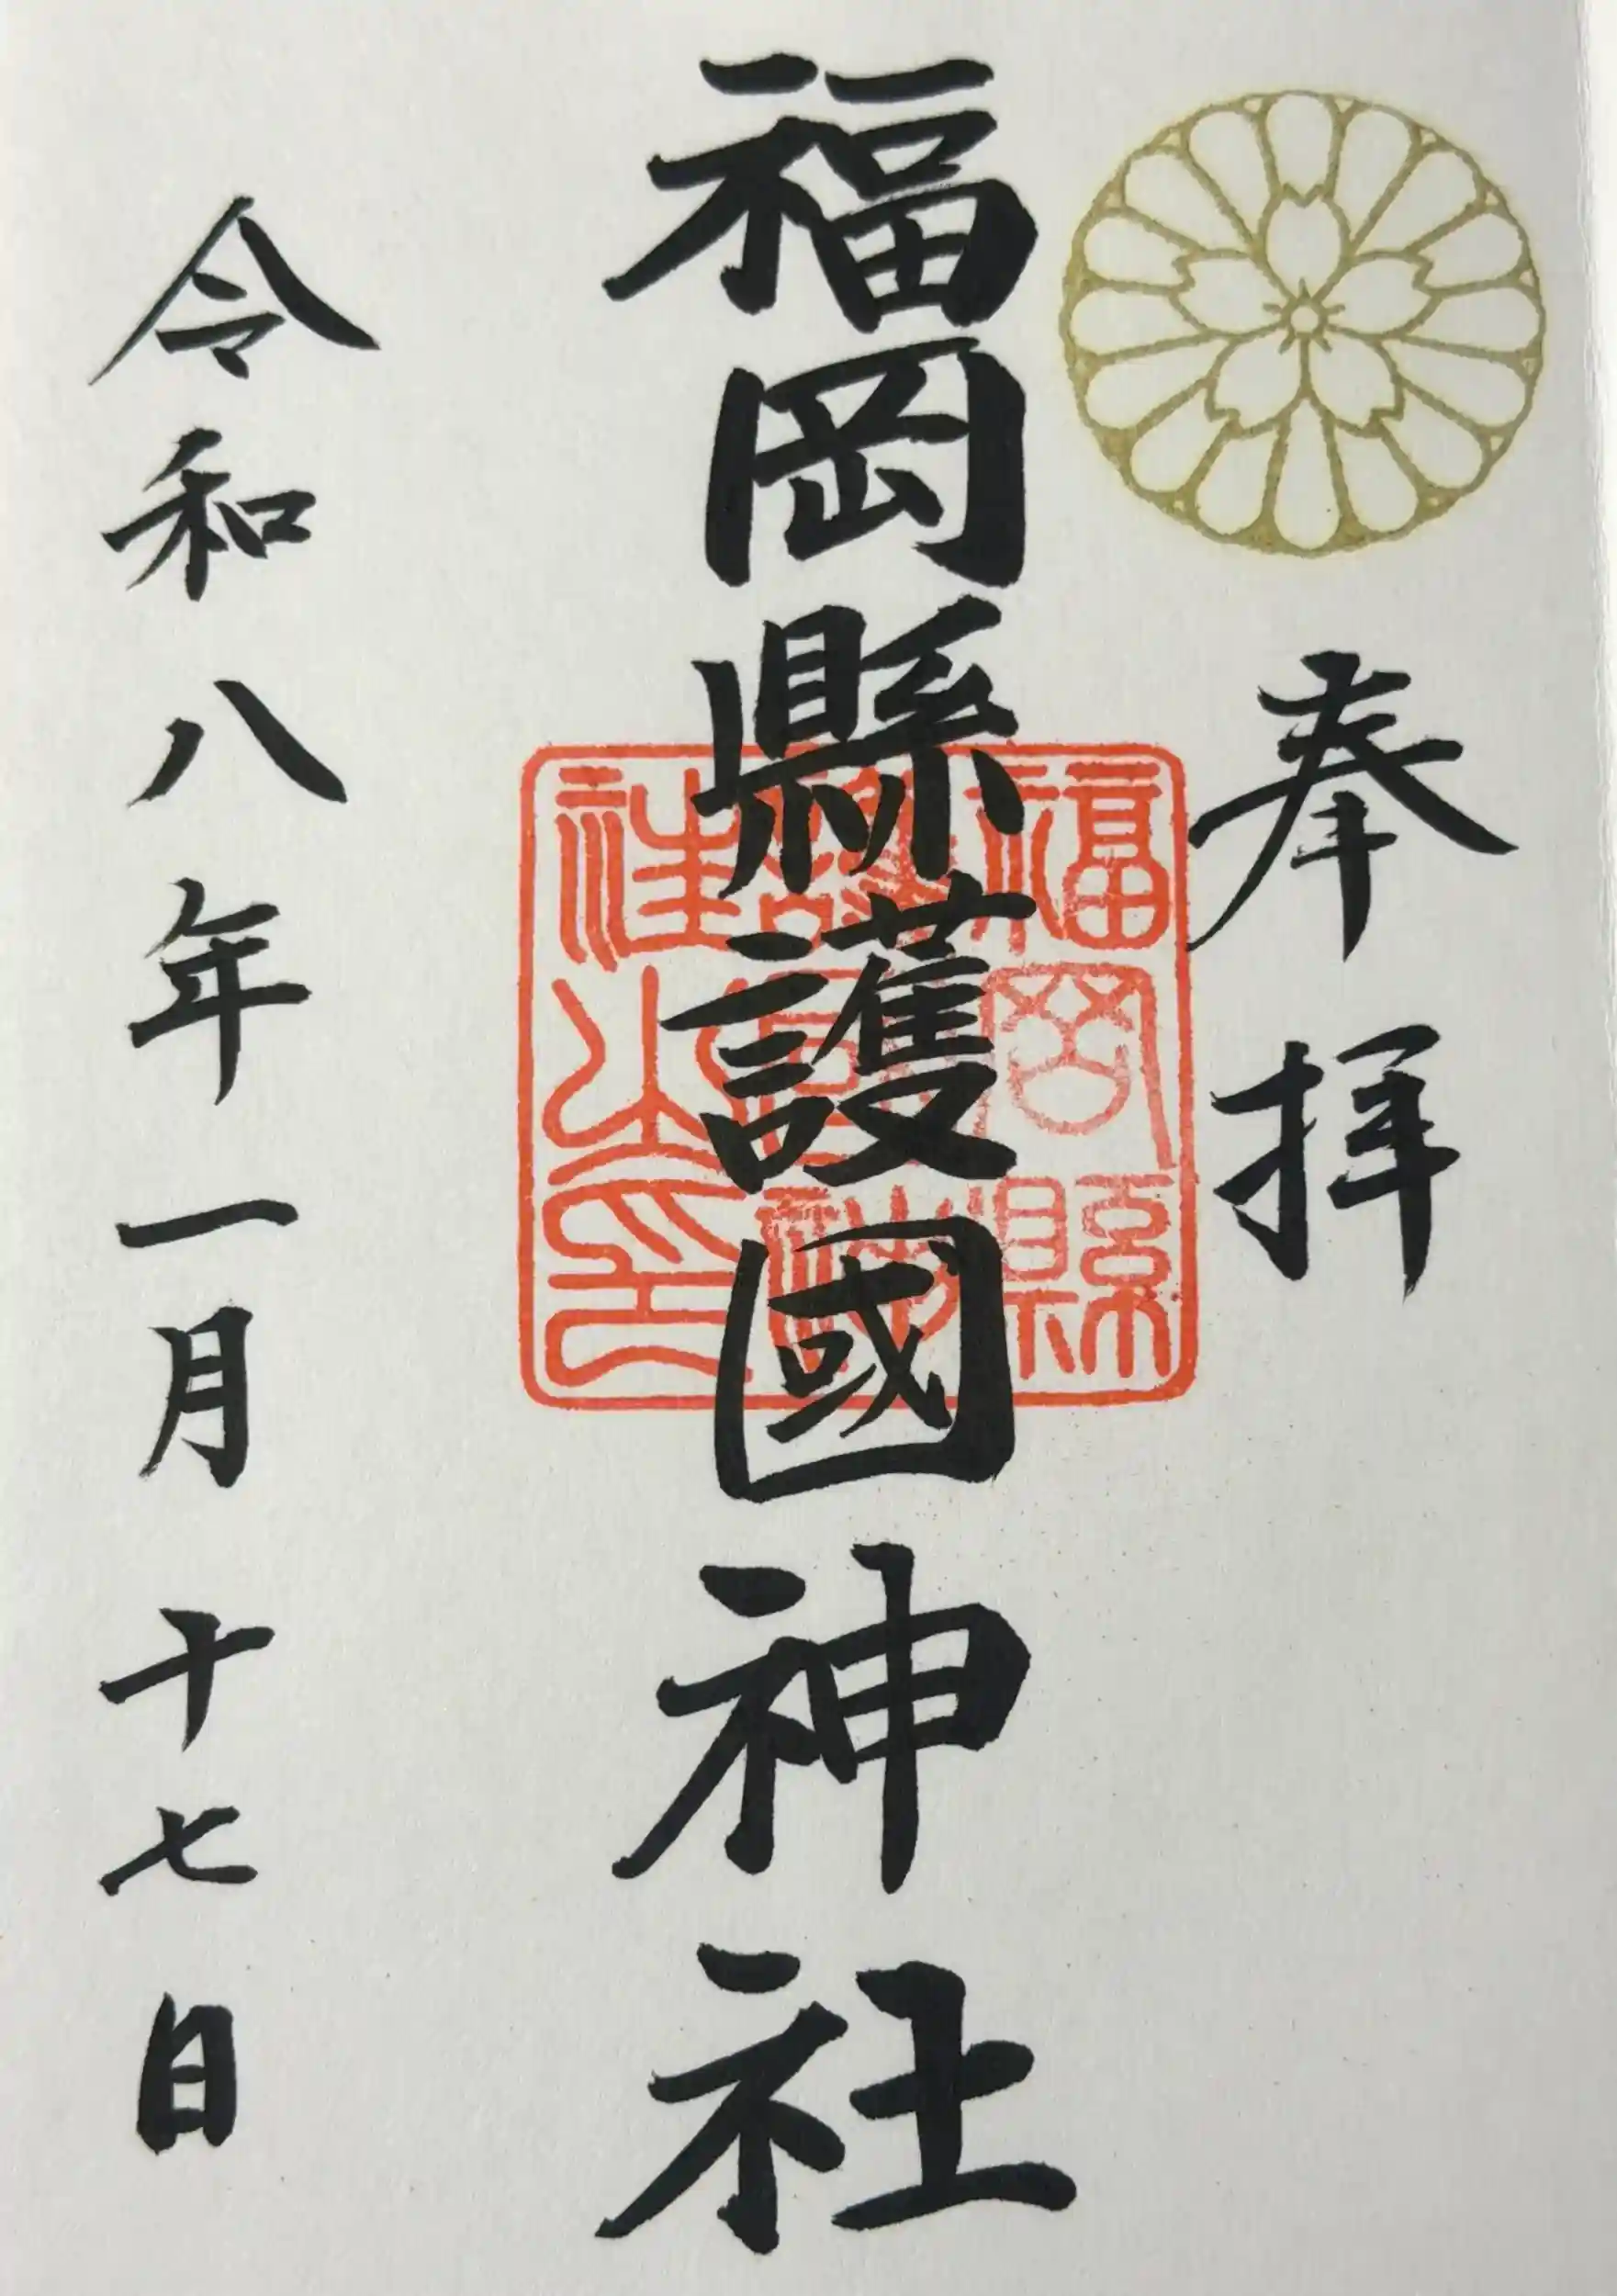 奉拝
福岡縣護國神社
福岡縣
令和八年一月十七日